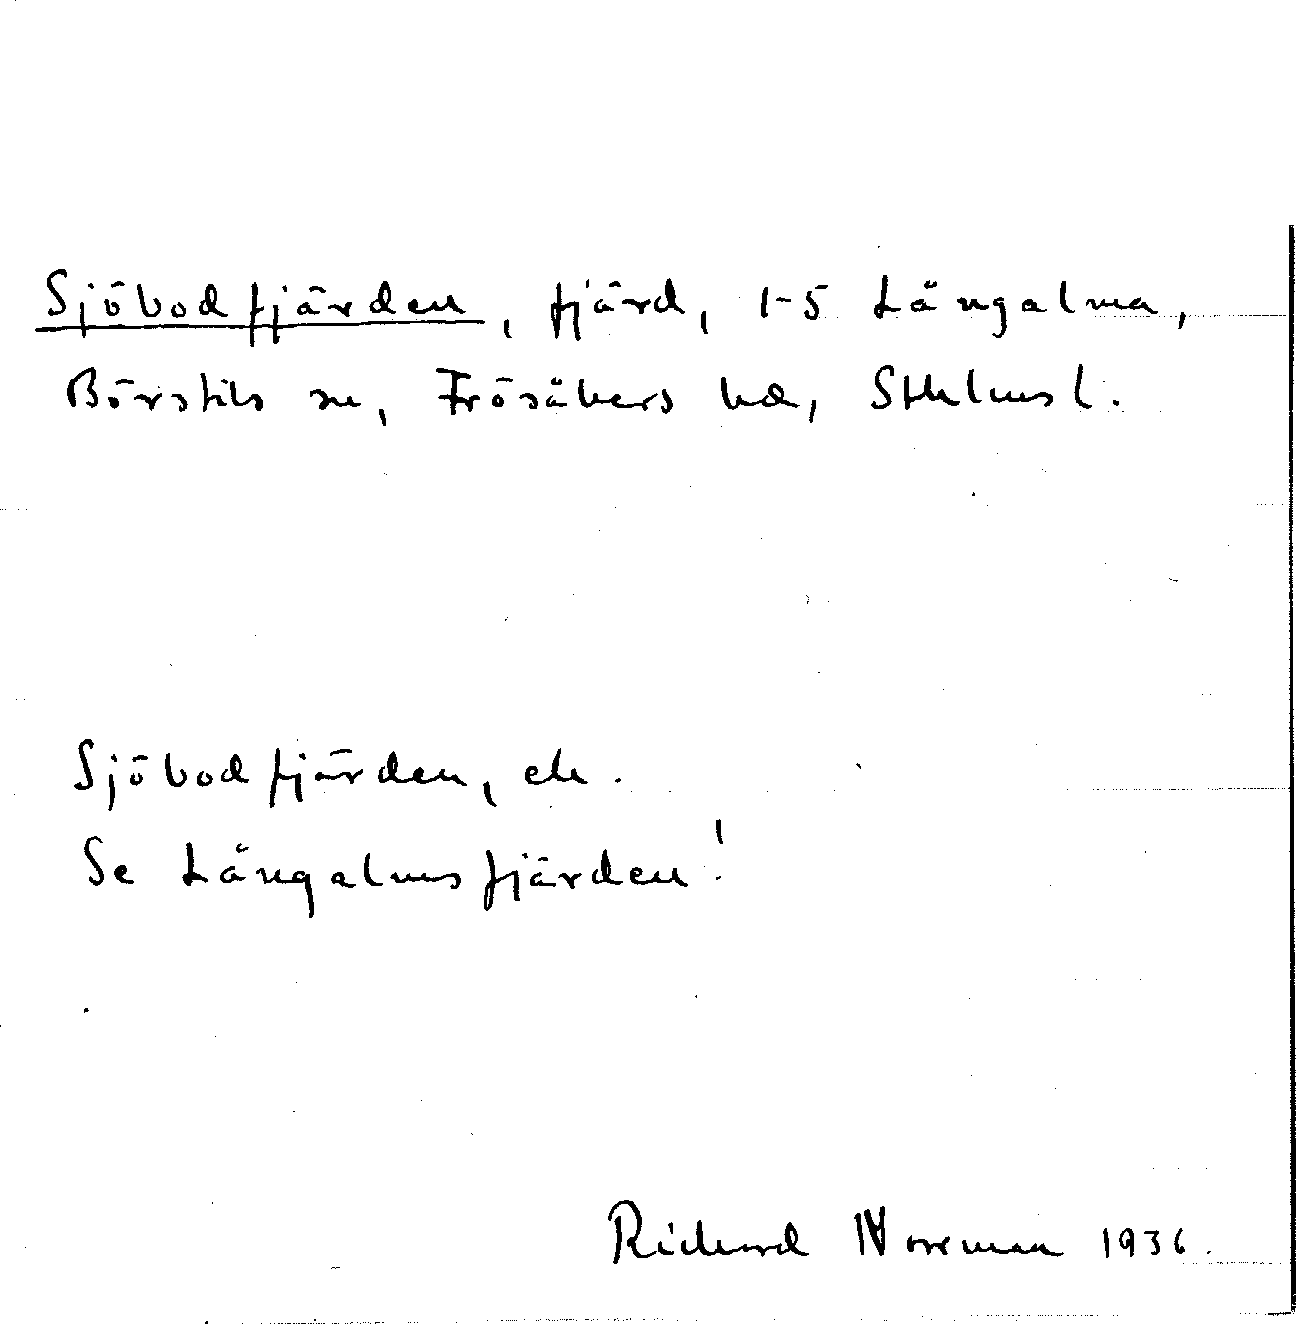 Sjöbodfjärden, fjärd, 1-5 Långalma,
Börstils sn, Frösåkers hd, Sthlms l.
Sjöbodfjärden, ek.
Se Långalmsfjärden!
Richard Norrman 1936.